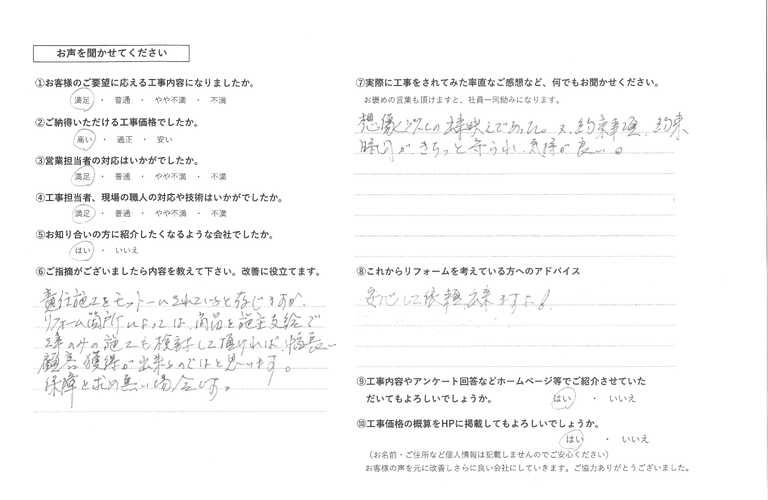 お声を聞かせてください
①お客様のご要望に応える工事内容になりましたか。
満足 ・ 普通 ・ やや不満 ・ 不満
②ご納得いただける工事価格でしたか。
高い ・ 適正 ・ 安い
③営業担当者の対応はいかがでしたか。
満足 ・ 普通 ・ やや不満 ・ 不満
④工事担当者、現場の職人の対応や技術はいかがでしたか。
満足 ・ 普通 ・ やや不満 ・ 不満
⑤お知り合いの方に紹介したくなるような会社でしたか。
はい ・ いいえ
⑥ご指摘がございましたら内容を教えて下さい。改善に役立てます。
責任施工をモットーにされていると存じますが、
リフォーム箇所によっては、商品を施主支給で
工事のみの施工も検討して頂ければ、幅広い
顧客獲得が出来るのではと思います。
保障を求め無い場合です。
⑦実際に工事をされてみた率直なご感想など、何でもお聞かせください。
お褒めの言葉も頂けますと、社員一同励みになります。
想像以上の出来映えであった。又、約束事項、約束
時間がきちっと守られ、気持が良い。
⑧これからリフォームを考えている方へのアドバイス
安心して依頼出来ますよ!
⑨工事内容やアンケート回答などホームページ等でご紹介させていた
だいてもよろしいでしょうか。 はい ・ いいえ
⑩工事価格の概算をHPに掲載してもよろしいでしょうか。
はい ・ いいえ
(お名前・ご住所など個人情報は記載しませんのでご安心ください)
お客様の声を元に改善しさらに良い会社にしていきます。ご協力ありがとうございました。